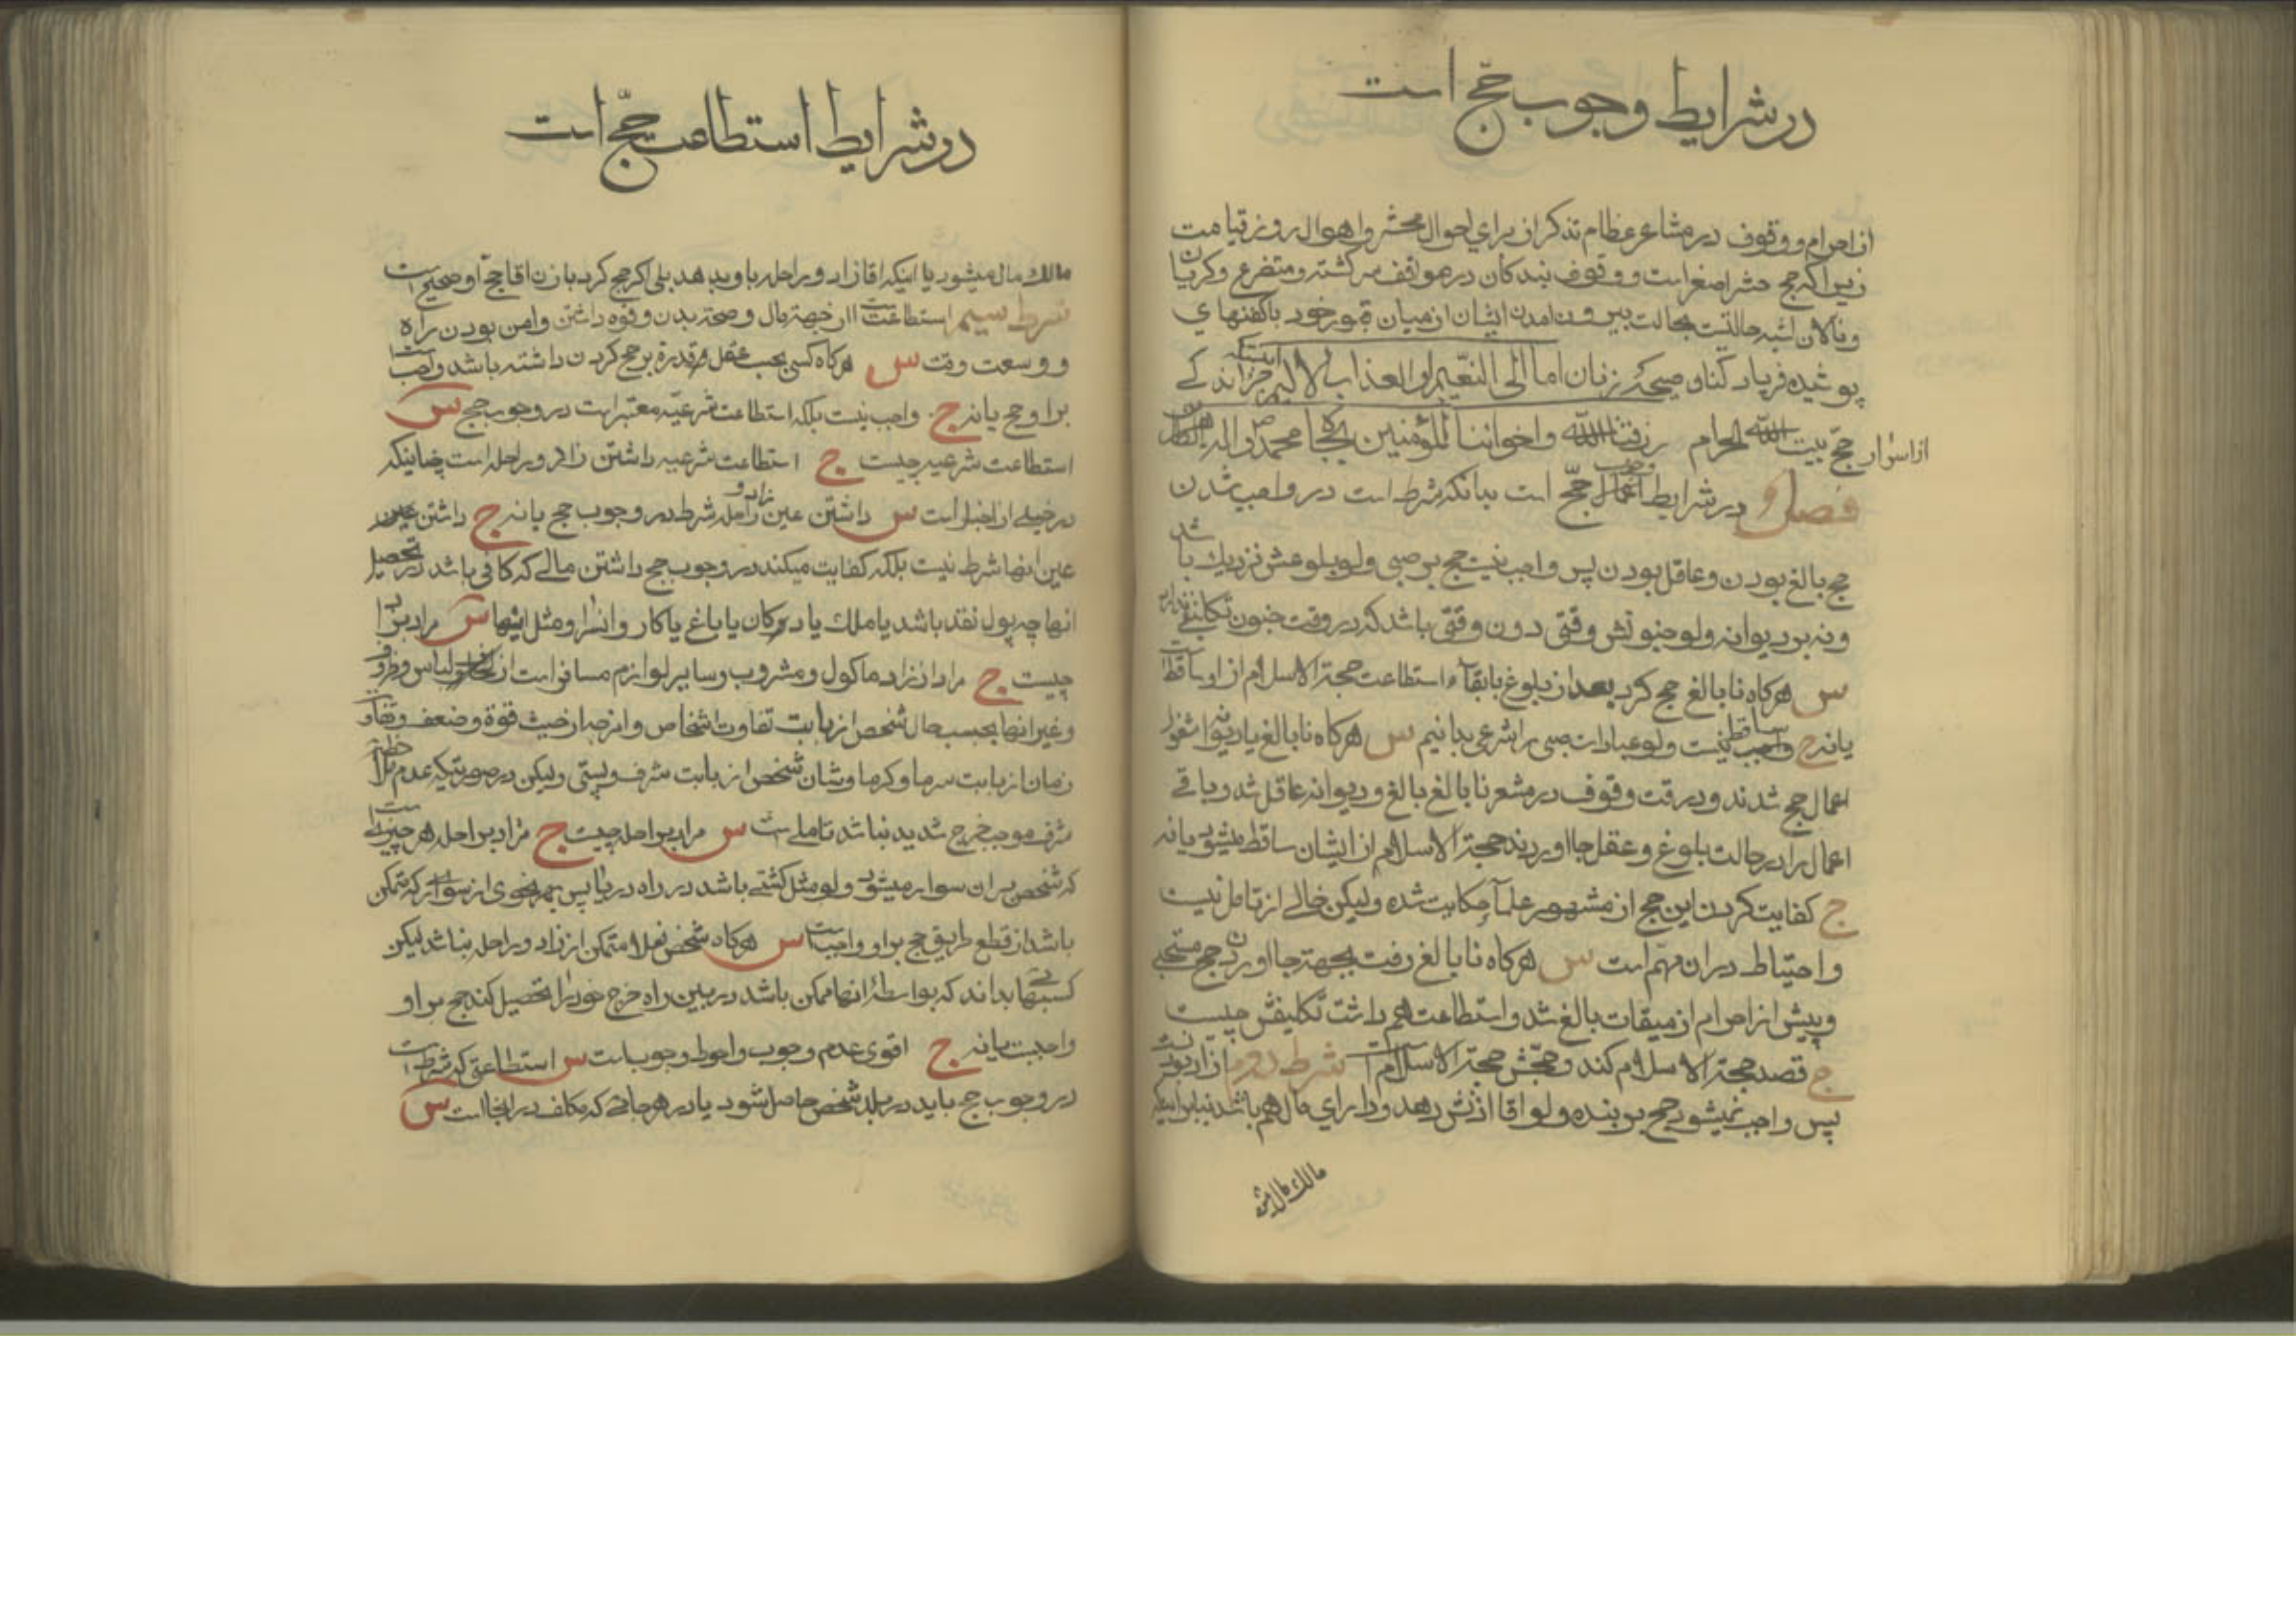 در شرایط وجوب حجّ است
از احرام و وقوف در مشاعر عظام تذکر از برای احوال محشر و اهوال روز قیامت
زیرا که حج حشر اصغر است و وقوف بندکان در موافق سرکشته و متضرع و کریان
و نالان اشبه حالتیست بحالت بیرون امدن ایشان از میان قبور خود باکفنهای
پوشیده فریاد کنان و صیحه زنان اما الی النعیم او العذاب الالیم
از اسرار حجّ بیت الله الحرام رزقنا الله و اخواننا المؤمنین بجاه محمد و اله
فصل و در شرایط وجوب حجّ است بدانکه شرط است در واجب شدن
حج بالغ بودن و عاقل بودن پس واجب نیست حج بر صبی ولو بلوغش نزدیک باشد
و نه بر دیوانه ولو جنونش وقتی دون وقتی باشد که در وقت جنون تکلیفی ندارد
س هرکاه نابالغ حج کرد بعد از بلوغ با بقاء استطاعت حجة الاسلام از او ساقط است
یا نه ج ساقط نیست ولو عبادات صبی را شرعی بدانیم س هرکاه نابالغ یا دیوانه مشغول
اعمال حج شدند و در وقت وقوف در مشعر نابالغ بالغ و دیوانه عاقل شد و باقی
اعمال را در حالت بلوغ و عقل جا اوردند حجة الاسلام از ایشان ساقط میشود یا نه
ج کفایت کردن این حج از مشهور علمآ حکایت شده ولیکن خالی از تامل نیست
و احتیاط در ان مهم است س هرکاه نابالغ رفت بجهة جا اوردن حج مستحبی
و پیش از احرام از میقات بالغ شد و استطاعت هم داشت تکلیفش چیست
ج قصد حجة الاسلام کند و حجّش حجة الاسلام است شرط دوم ازاد بودنست
پس واجب نمیشود حج بر بنده ولو اقا اذنش دهد و دارای مال هم باشد بنابر اینکه
مالک مال میشود
در شرایط استطاعت حجّ است
مالک مال میشود یا اینکه اقا زاد و راحله باو بدهد بلی اکر حج کرد باذن اقا حج او صحیح است
شرط سیم استطاعت است از جهة مال و صحة بدن و قوه داشتن و امن بودن راه
و وسعت وقت س هرکاه کسی بحسب عقل قدرة بر حج کردن داشته باشد واجب است
براو حج یا نه ج واجب نیست بلکه استطاعت شرعیّه معتبر است در وجوب حج س
استطاعت شرعیه چیست ج استطاعت شرعیه داشتن زاد و راحله است چنانکه
در خیلی از اخبار است س داشتن عین زاد و راحله شرط در وجوب حج یا نه ج داشتن
عین انها شرط نیست بلکه کفایت میکند در وجوب حج داشتن مالی که کافی باشد در تحصیل
انها چه پول نقد باشد یا ملک یا دوکان یا باغ یا کاروانسرا و مثل اینها س مراد بزاد
چیست ج مراد از زاد ماکول و مشروب و سایر لوازم مسافر است از لباس و ظروف
و غیر انها بحسب حال شخص از بابت تفاوت اشخاص و ازحیث قوة و ضعف و تفاوت
زمان از بابت سرما و کرما و شان شخص از بابت شرف و پستی ولیکن در صورتیکه عدم ملاحظه
شرف موجب حرج شدید نباشد تاملی است س مراد براحله چیست ج مراد براحله هر چیزی است
که شخص بر ان سوار میشود ولو مثل کشتی باشد در راه دریا پس بهر نحوی از سواری که متمکن
باشد از قطع طریق حج براو واجب است س هرکاه شخص فعلا متمکن از زاد و راحله نباشد لیکن
کسبهائی بداند که بواسطه انها ممکن باشد در بین راه خرج خود را تحصیل کند حج براو
واجبست یا نه ج اقوی عدم وجوب و احوط وجوب است س استطاعتی که شرط است
در وجوب حج باید در بلد شخص حاصل شود یا در هر جائی که مکلف در انجا است س